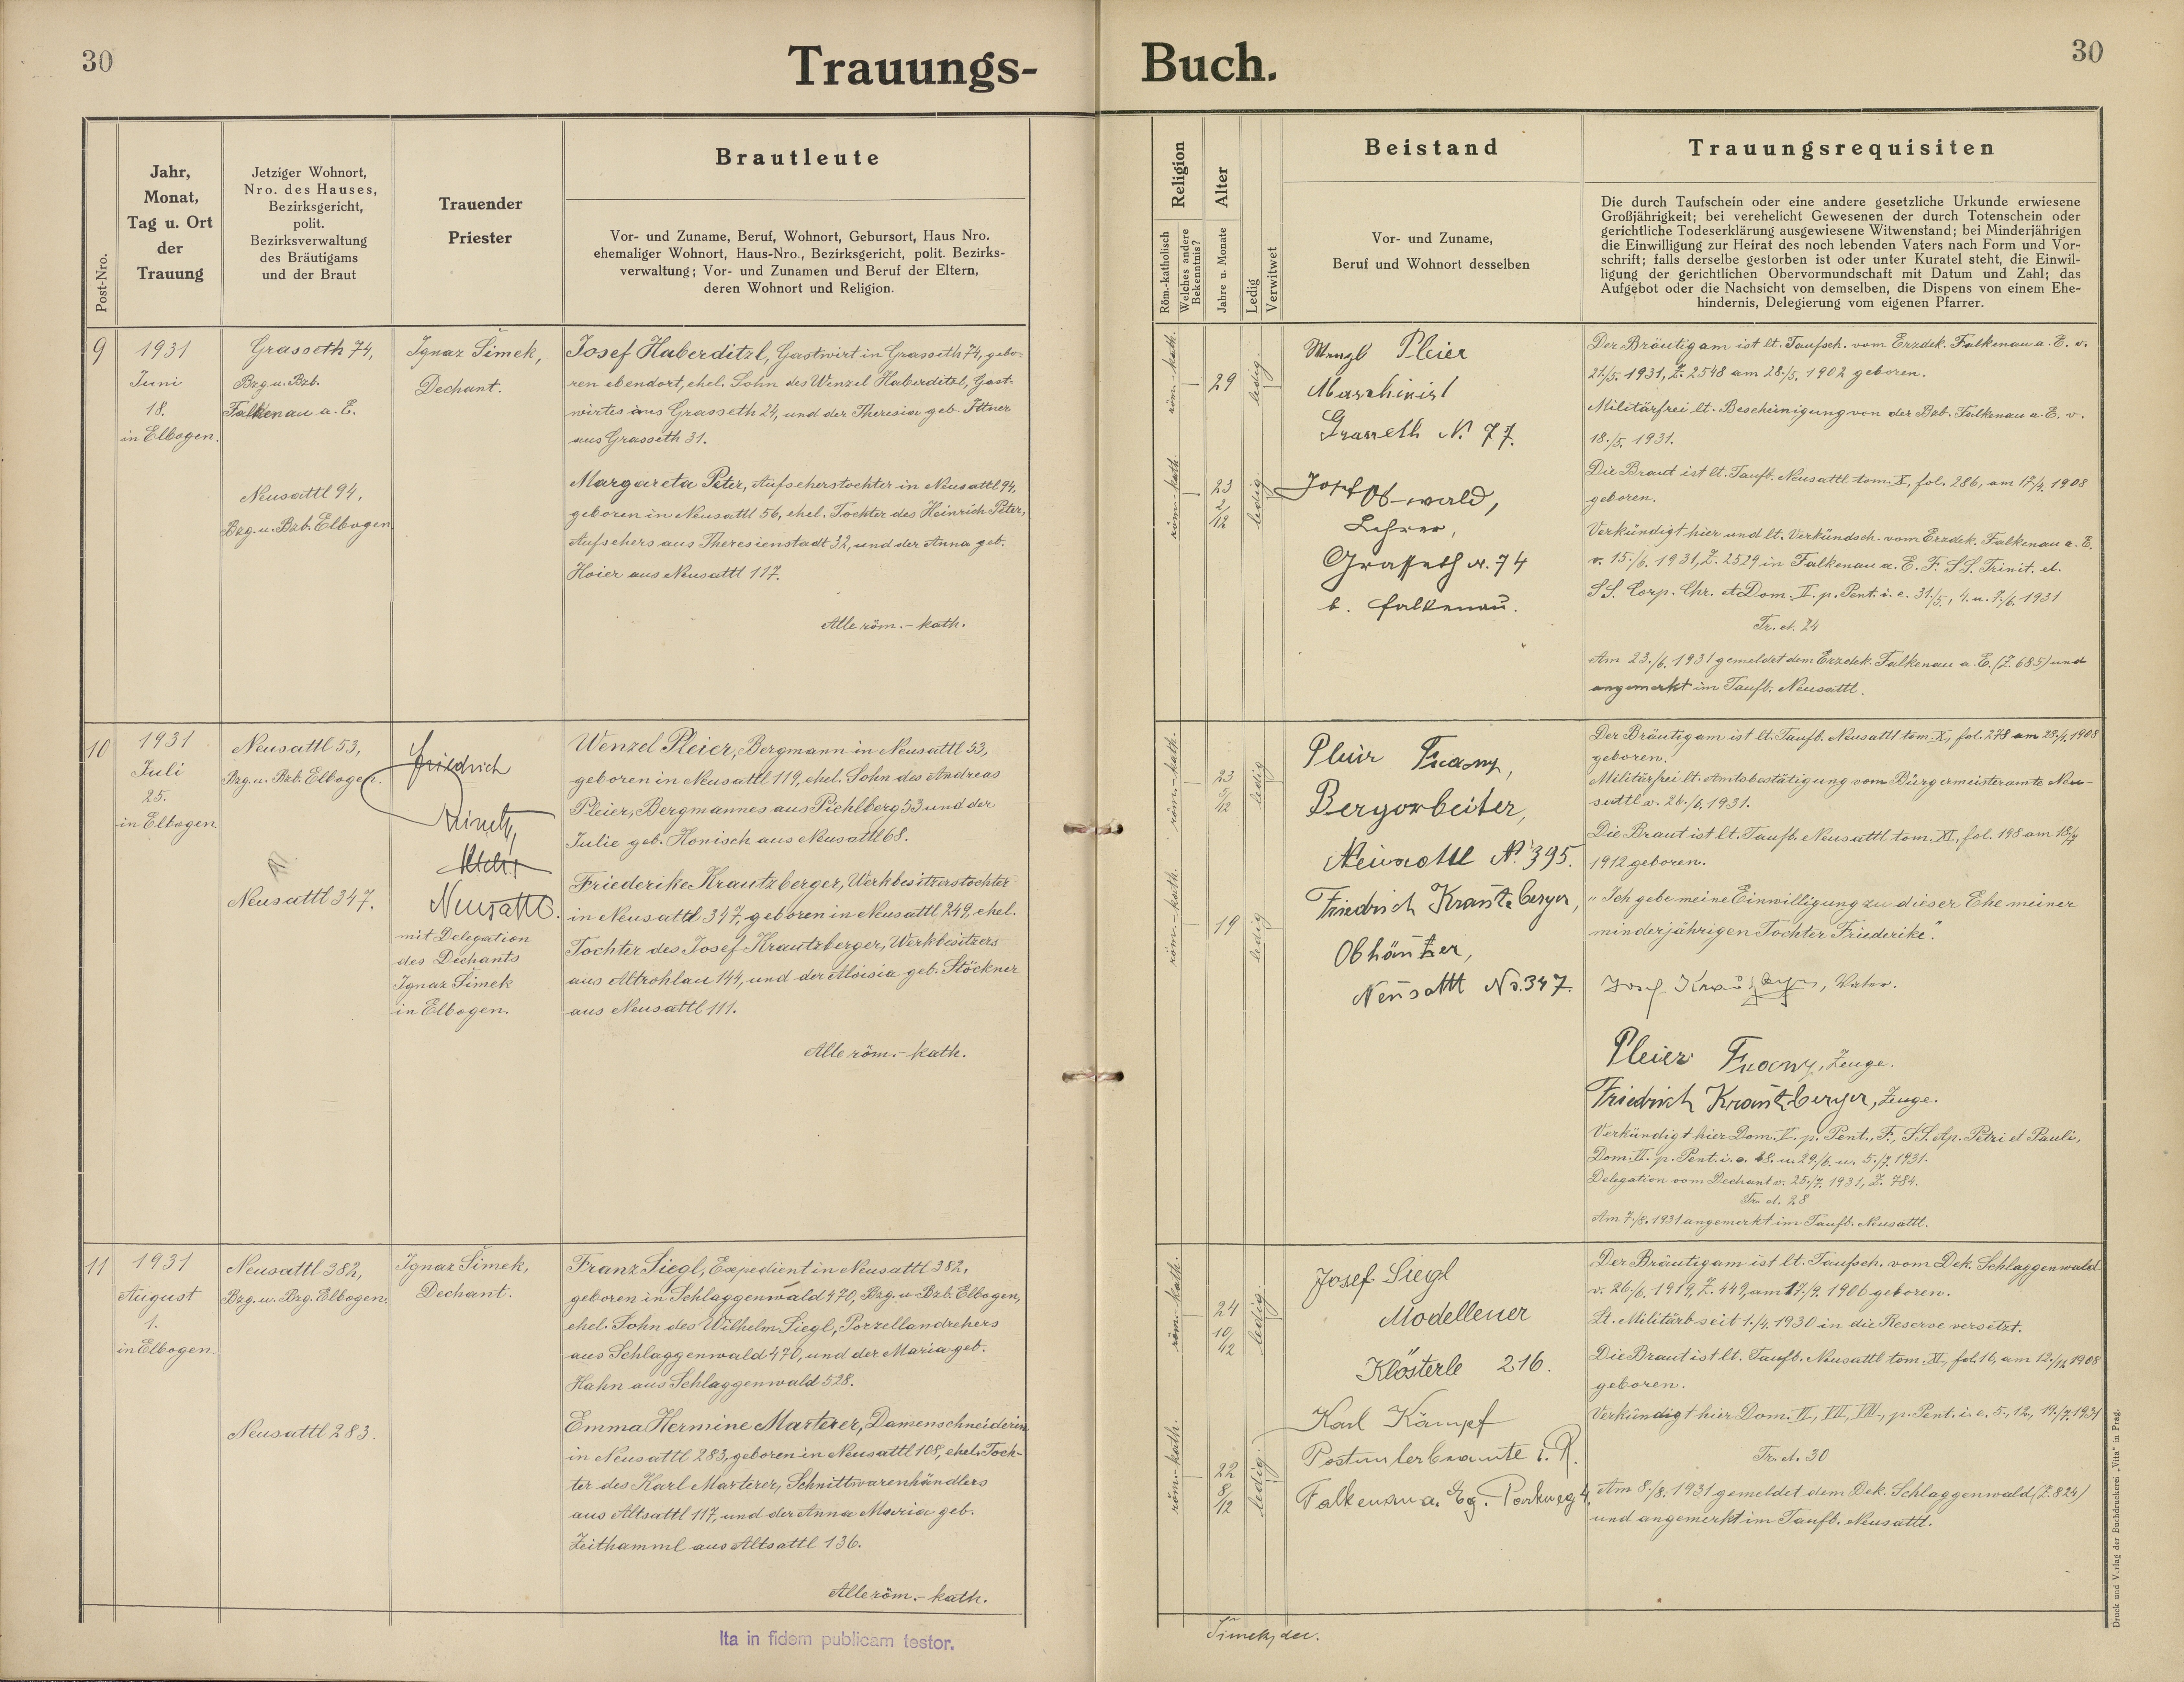 30
Trauungs-
Post-Nro.
Jahr,
Monat,
Tag u. Ort
der
Trauung
Jetziger Wohnort,
Nro. des Hauses,
Bezirksgericht,
polit.
Bezirksverwaltung
des Bräutigams
und der Braut
Trauender
Priester
Brautleute
Vor- und Zuname, Beruf, Wohnort, Gebursort, Haus Nro.
ehemaliger Wohnort, Haus-Nro., Bezirksgericht, polit. Bezirks-
verwaltung; Vor- und Zunamen und Beruf der Eltern,
deren Wohnort und Religion.
9
1931
Juni
18.
in Elbogen.
Grasseth 74,
Bzg. u. Bzb.
Falkenau a. E.
Neusattl 94,
Bzg. u. Bzb. Elbogen
Ignaz Šimek,
Dechant.
Josef Haberditzl, Gastwirt in Grasseth 74, gebo-
ren ebendort, ehel. Sohn des Wenzel Haberditzl, Gast-
wirtes aus Grasseth 24, und der Theresia geb. Ittner
aus Grasseth 31.
Margareta Peter, Aufseherstochter in Neusattl 94,
geboren in Neusattl 56, ehel. Tochter des Heinrich Peter,
Aufsehers aus Theresienstadt 32, und der Anna geb.
Hoier aus Neusattl 117.
Alle röm.-kath.
10
1931
Juli
25.
in Elbogen.
Neusattl 53,
Bzg. u. Bzb. Elbogen.
Neusattl 347.
Friedrich
Neusattl.
mit Delegation
des Dechants
Ignaz Šimek
in Elbogen.
Wenzel Pleier, Bergmann in Neusattl 53,
geboren in Neusattl 119, ehel. Sohn des Andreas
Pleier, Bergmannes aus Pichlberg 53 und der
Julie geb. Honisch aus Neusattl 68.
Friederike Krautzberger, Werkbesitzerstochter
in Neusattl 347, geboren in Neusattl 249, ehel.
Tochter des Josef Krautzberger, Werkbesitzers
aus Altrohlau 144, und der Aloisia geb. Stöckner
aus Neusattl 111.
Alle röm.-kath.
11
1931
August
1.
in Elbogen.
Neusattl 382,
Bzg. u. Bzg. Elbogen.
Neusattl 283.
Ignaz Šimek,
Dechant.
Franz Siegl, Expedient in Neusattl 382,
geboren in Schlaggenwald 470, Bzg. u. Bzb. Elbogen,
ehel. Sohn des Wilhelm Siegl, Porzellandrehers
aus Schlaggenwald 470, und der Maria geb.
Hahn aus Schlaggenwald 528.
Emma Hermine Marterer, Damenschneiderin
in Neusattl 283, geboren in Neusattl 108, ehel. Toch-
ter des Karl Marterer, Schnittwarenhändlers
aus Altsattl 117, und der Anna Maria geb.
Zeithamml aus Altsattl 136.
Alle röm.-kath.
Ita in fidem publicam testor.
Buch.
30
Religion
Röm.-katholisch
Welches andere
Bekenntnis?
Alter
Jahre u. Monate
Ledig
Verwitwet
Beistand
Vor- und Zuname,
Beruf und Wohnort desselben
Trauungsrequisiten
Die durch Taufschein oder eine andere gesetzliche Urkunde erwiesene
Großjährigkeit; bei verehelicht Gewesenen der durch Totenschein oder
gerichtliche Todeserklärung ausgewiesene Witwenstand; bei Minderjährigen
die Einwilligung zur Heirat des noch lebenden Vaters nach Form und Vor-
schrift; falls derselbe gestorben ist oder unter Kuratel steht, die Einwil-
ligung der gerichtlichen Obervormundschaft mit Datum und Zahl; das
Aufgebot oder die Nachsicht von demselben, die Dispens von einem Ehe-
hindernis, Delegierung vom eigenen Pfarrer.
röm.-kath.
29
ledig
röm.-kath.
23
2/12
ledig
Wenzl Pleier
Maschinist
Grasseth N. 77.
Josef Oswald,
Lehrer,
Grasseth N. 74
b. Falkenau.
Der Bräutigam ist lt. Taufsch. vom Erzdek. Falkenau a. E. v.
21./5. 1931, Z. 2548 am 28./5. 1902 geboren.
Militärfrei lt. Bescheinigung von der Bzb. Falkenau a. E. v.
18./5. 1931.
Die Braut ist lt. Taufb. Neusattl tom. X, fol. 286, am 17./4. 1908
geboren.
Verkündigt hier und lt. Verkündsch. vom Erzdek. Falkenau a. E.
v. 15./6. 1931, Z. 2529 in Falkenau a. E. F. SS. Trinit. et.
SS. Corp. Chr. et Dom. II. p. Pent. i. e. 31./5., 4. u. 7./6. 1931
Tr. et. 24
Am 23./6. 1931 gemeldet dem Erzdek. Falkenau a. E. (Z. 685) und
angemerkt im Taufb. Neusattl.
röm.-kath.
23
5/12
ledig
röm.-kath.
19
ledig
Pleier Franz,
Bergarbeiter,
Neusattl No. 395.
Friedrich Krautzberger,
Obhändler,
Neusattl No. 347.
Der Bräutigam ist lt. Taufb. Neusattl tom. X, fol. 278 am 28./1. 1908
geboren.
Militärfrei lt. Amtsbestätigung vom Bürgermeisteramte Neu-
sattl v. 26./6. 1931.
Die Braut ist lt. Taufb. Neusattl tom. XI, fol. 198 am 18./7
1912 geboren.
"Ich gebe meine Einwilligung zu dieser Ehe meiner
minderjährigen Tochter Friederike".
Josef Krautzberger, Vater.
Pleier Franz, Zeuge.
Friedrich Krautzberger, Zeuge.
Verkündigt hier Dom. V. p. Pent., F., SS. Ap. Petri et Pauli,
Dom. VI. p. Pent. i. e. 28. u. 29./6. u. 5./7. 1931.
Delegation vom Dechant v. 25./7. 1931, Z. 784.
Tr. et. 28
Am 7./8. 1931 angemerkt im Taufb. Neusattl.
röm.-kath.
24
10/12
ledig
röm.-kath.
22
8/12
ledig
Josef Siegl
Modelleuer
Klösterle 216.
Karl Kämpf
Postunterbeamte i. R.
Falkenau a. Eg. Parkweg 4.
Der Bräutigam ist lt. Taufsch. vom Dek. Schlaggenwald
v. 26./6. 1919, Z. 449, am 17./9. 1906 geboren.
Lt. Militärb seit 1./4. 1930 in die Reserve versetzt.
Die Braut ist lt. Taufb. Neusattl tom. XI, fol. 16, am 12./11. 1908
geboren.
Verkündigt hier Dom. VI, VII, VIII, p. Pent. i. e. 5., 12., 19./7. 1931
Tr. et. 30
Am 8./8. 1931 gemeldet dem Dek. Schlaggenwald (Z. 824)
und angemerkt im Taufb. Neusattl.
Šimek, dec.
Druck und Verlag der Buchdruckerei „Vita" in Prag.